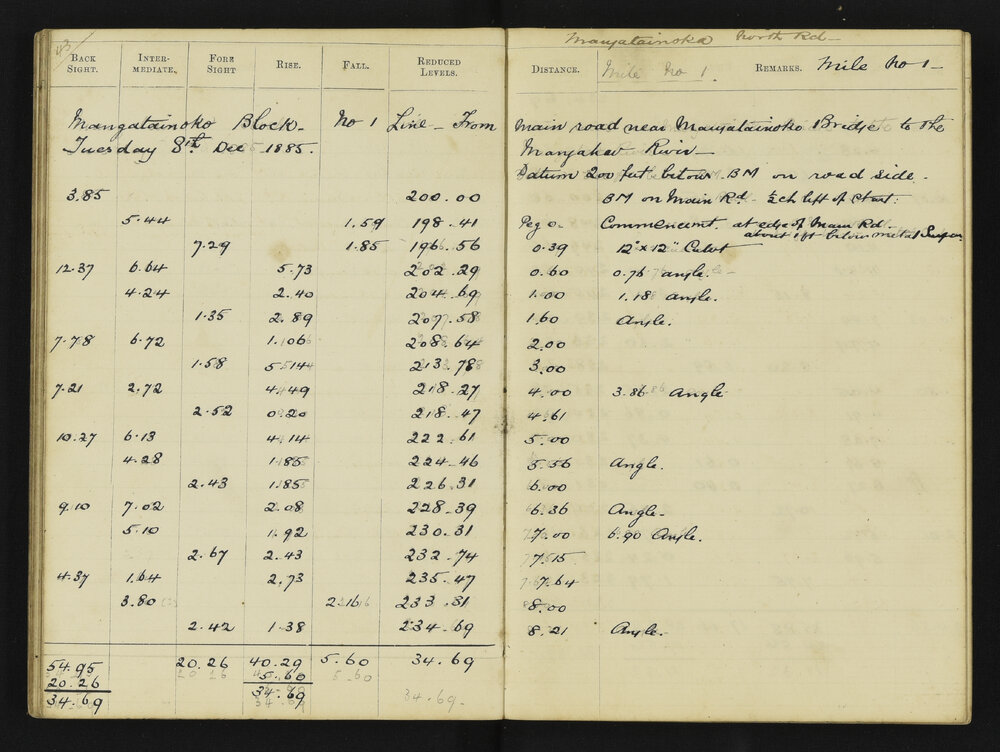 Mangatainoka North Rd
BACK SIGHT. INTER-MEDIATE. FORE SIGHT RISE. FALL. REDUCED LEVELS. DISTANCE. Mile No 1. REMARKS. Mile No 1
Mangatainoko Block - No 1 Line - From Main road near Mangatainoko Bridge to the
Tuesday 8th Dec 1885. Mangahao River
Datum 200 feet below BM on road side.
3.85 200.00 BM on Main Rd. left of
5.44 1.59 198.41 Peg 0. Commencemt. at edge of Main Rd.
about 1ft below metal
7.29 1.85 196.56 0.39 12" x 12" Culvt
12.37 6.64 5.73 202.29 0.60 0.76 angle.
4.24 2.40 204.69 1.00 1.18 angle.
1.35 2.89 207.58 1.60 Angle.
7.78 6.72 1.06 208.64 2.00
1.58 5.14 213.78 3.00
7.21 2.72 4.49 218.27 4.00 3.86 Angle
2.52 0.20 218.47 4.61
10.27 6.13 4.14 222.61 5.00
4.28 1.85 224.46 5.56 Angle.
2.43 1.85 226.31 6.00
9.10 7.02 2.08 228.39 6.36 Angle.
5.10 1.92 230.31 7.00 6.90 Angle.
2.67 2.43 232.74 7.15
4.37 1.64 2.73 235.47 7.64
3.80 2.16 233.31 8.00
2.42 1.38 234.69 8.21 Angle.
54.95 20.26 40.29 5.60 34.69
20.26 20 26 5.60 5.60
34.69 34.69 34.69.